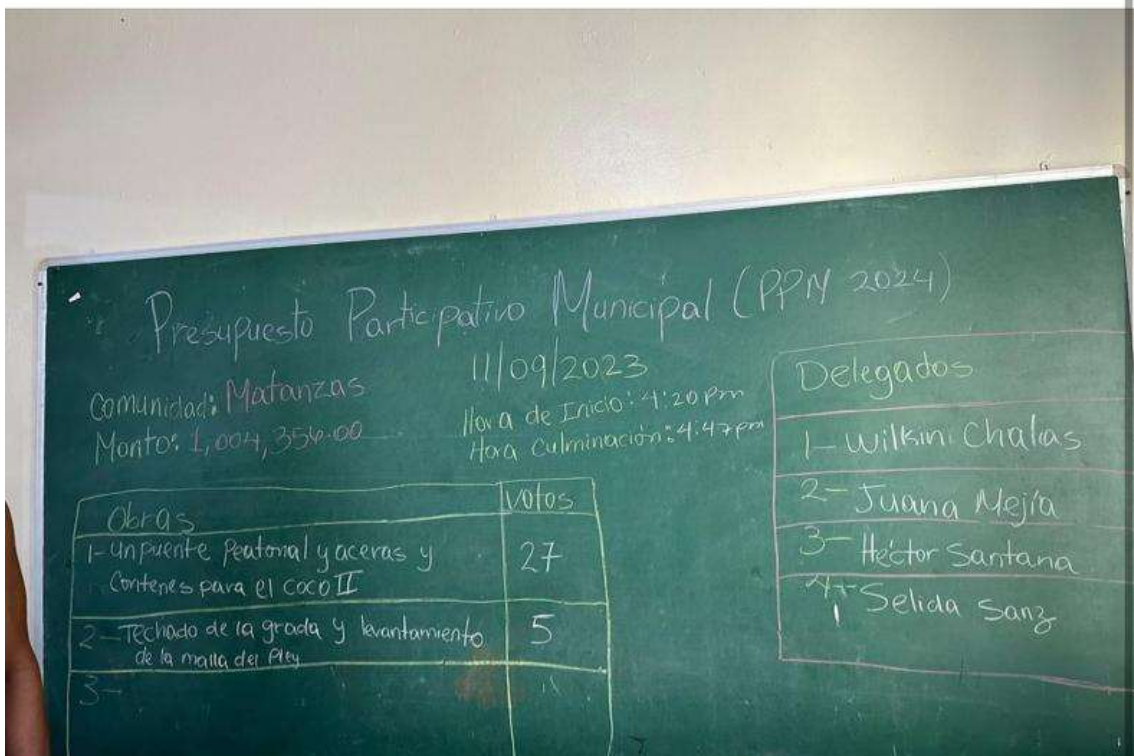 Presupuesto Participativo Municipal (PPM 2024)
11/09/2023
Comunidad: Matanzas
Monto: 1,004,356.00
Hora de Inicio: 4:20 pm
Hora Culminación: 4:47 pm
Obras
votos
1- un puente Peatonal y aceras y
Contenes para el coco II
27
2- Techado de la grada y levantamiento
de la malla del Pley
5
3-
Delegados
1- Wilkini Chalas
2- Juana Mejía
3- Héctor Santana
4- Selida Sanz